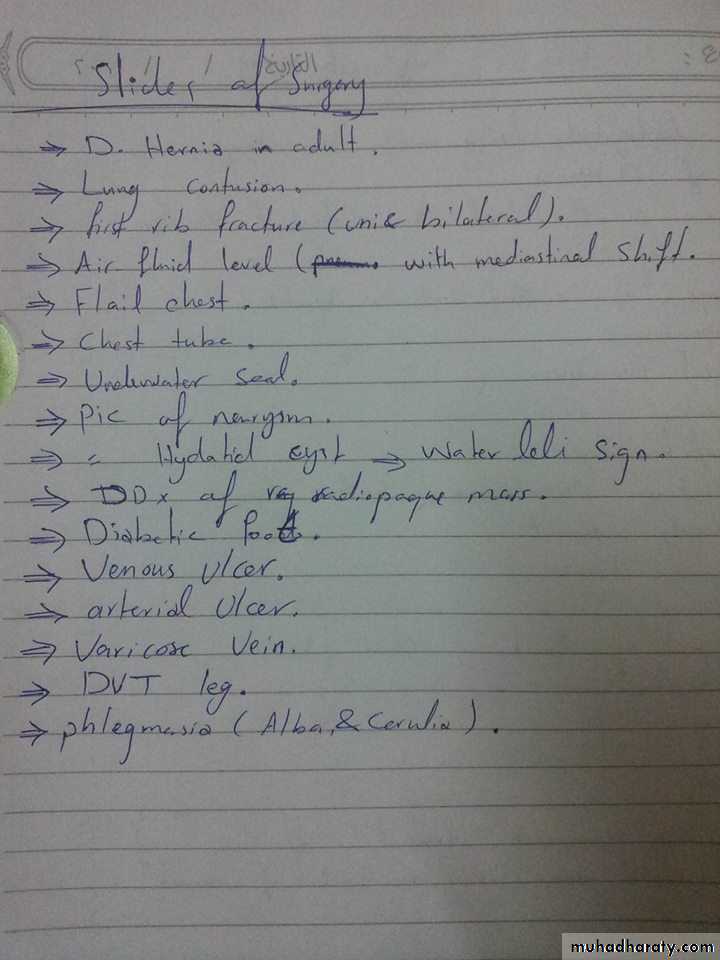 التاريخ
ع :
Slides of Surgery
⇒ D. Hernia in adult.
⇒ Lung contusion.
⇒ first rib fracture (uni& bilateral).
⇒ Air fluid level ( with mediastinal shift.
⇒ Flail chest.
⇒ Chest tube.
⇒ Underwater seal.
⇒ Pic of neurysm.
⇒ = Hydatid cyst ⇒ Water leli sign.
⇒ DDx of radiopaque mass.
⇒ Diabetic foot.
⇒ Venous Ulcer.
⇒ arterial Ulcer.
⇒ Varicose Vein.
⇒ DVT leg.
⇒ phlegmasia (Alba,& Cerulia).
muhadharaty.com